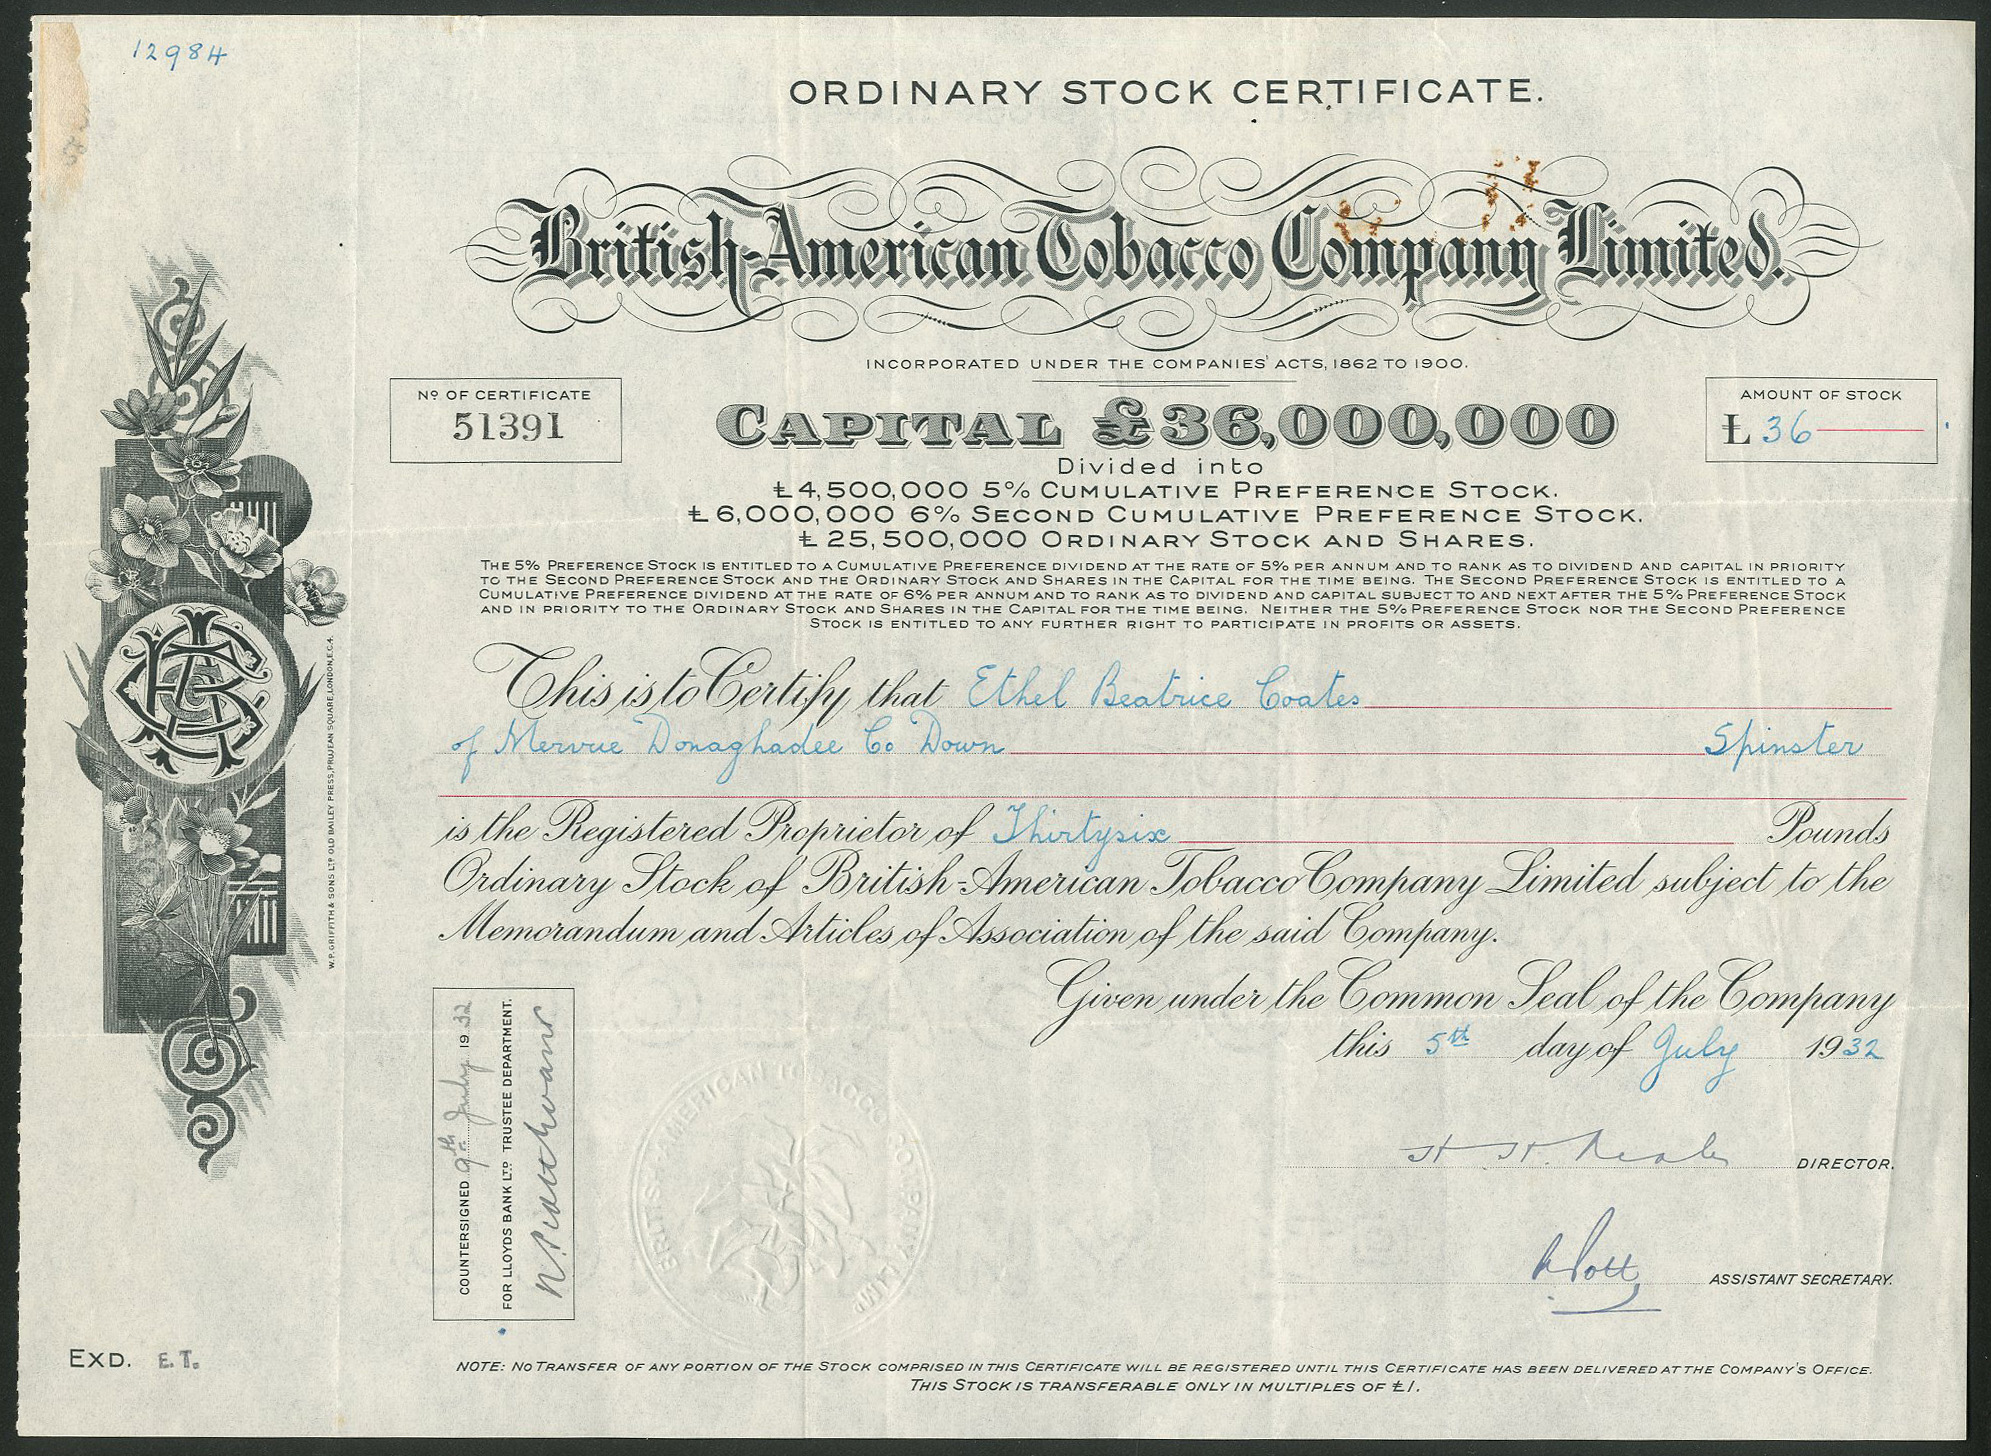 12984
ORDINARY STOCK CERTIFICATE.
British-American Tobacco Company Limited.
INCORPORATED UNDER THE COMPANIES' ACTS, 1862 TO 1900.
Nº OF CERTIFICATE
51391
AMOUNT OF STOCK
£ 36
CAPITAL £36,000,000
Divided into
£4,500,000 5% CUMULATIVE PREFERENCE STOCK.
£6,000,000 6% SECOND CUMULATIVE PREFERENCE STOCK.
£25,500,000 ORDINARY STOCK AND SHARES.
THE 5% PREFERENCE STOCK IS ENTITLED TO A CUMULATIVE PREFERENCE DIVIDEND AT THE RATE OF 5% PER ANNUM AND TO RANK AS TO DIVIDEND AND CAPITAL IN PRIORITY
TO THE SECOND PREFERENCE STOCK AND THE ORDINARY STOCK AND SHARES IN THE CAPITAL FOR THE TIME BEING. THE SECOND PREFERENCE STOCK IS ENTITLED TO A
CUMULATIVE PREFERENCE DIVIDEND AT THE RATE OF 6% PER ANNUM AND TO RANK AS TO DIVIDEND AND CAPITAL SUBJECT TO AND NEXT AFTER THE 5% PREFERENCE STOCK
AND IN PRIORITY TO THE ORDINARY STOCK AND SHARES IN THE CAPITAL FOR THE TIME BEING. NEITHER THE 5% PREFERENCE STOCK NOR THE SECOND PREFERENCE
STOCK IS ENTITLED TO ANY FURTHER RIGHT TO PARTICIPATE IN PROFITS OR ASSETS.
This is to Certify that Ethel Beatrice Coates
of Mervue Donaghadee Co Down Spinster
is the Registered Proprietor of Thirtysix Pounds
Ordinary Stock of British-American Tobacco Company Limited subject to the
Memorandum and Articles of Association of the said Company.
Given under the Common Seal of the Company
this 5th day of July 1932
DIRECTOR.
ASSISTANT SECRETARY.
COUNTERSIGNED 9th July 1932
FOR LLOYDS BANK LTD TRUSTEE DEPARTMENT.
BRITISH-AMERICAN TOBACCO COMPANY LIMI
W.P. GRIFFITH & SONS LTD OLD BAILEY PRESS, PRUJEAN SQUARE, LONDON, E.C.4.
EXD. E.T.
NOTE: NO TRANSFER OF ANY PORTION OF THE STOCK COMPRISED IN THIS CERTIFICATE WILL BE REGISTERED UNTIL THIS CERTIFICATE HAS BEEN DELIVERED AT THE COMPANY'S OFFICE.
THIS STOCK IS TRANSFERABLE ONLY IN MULTIPLES OF £1.